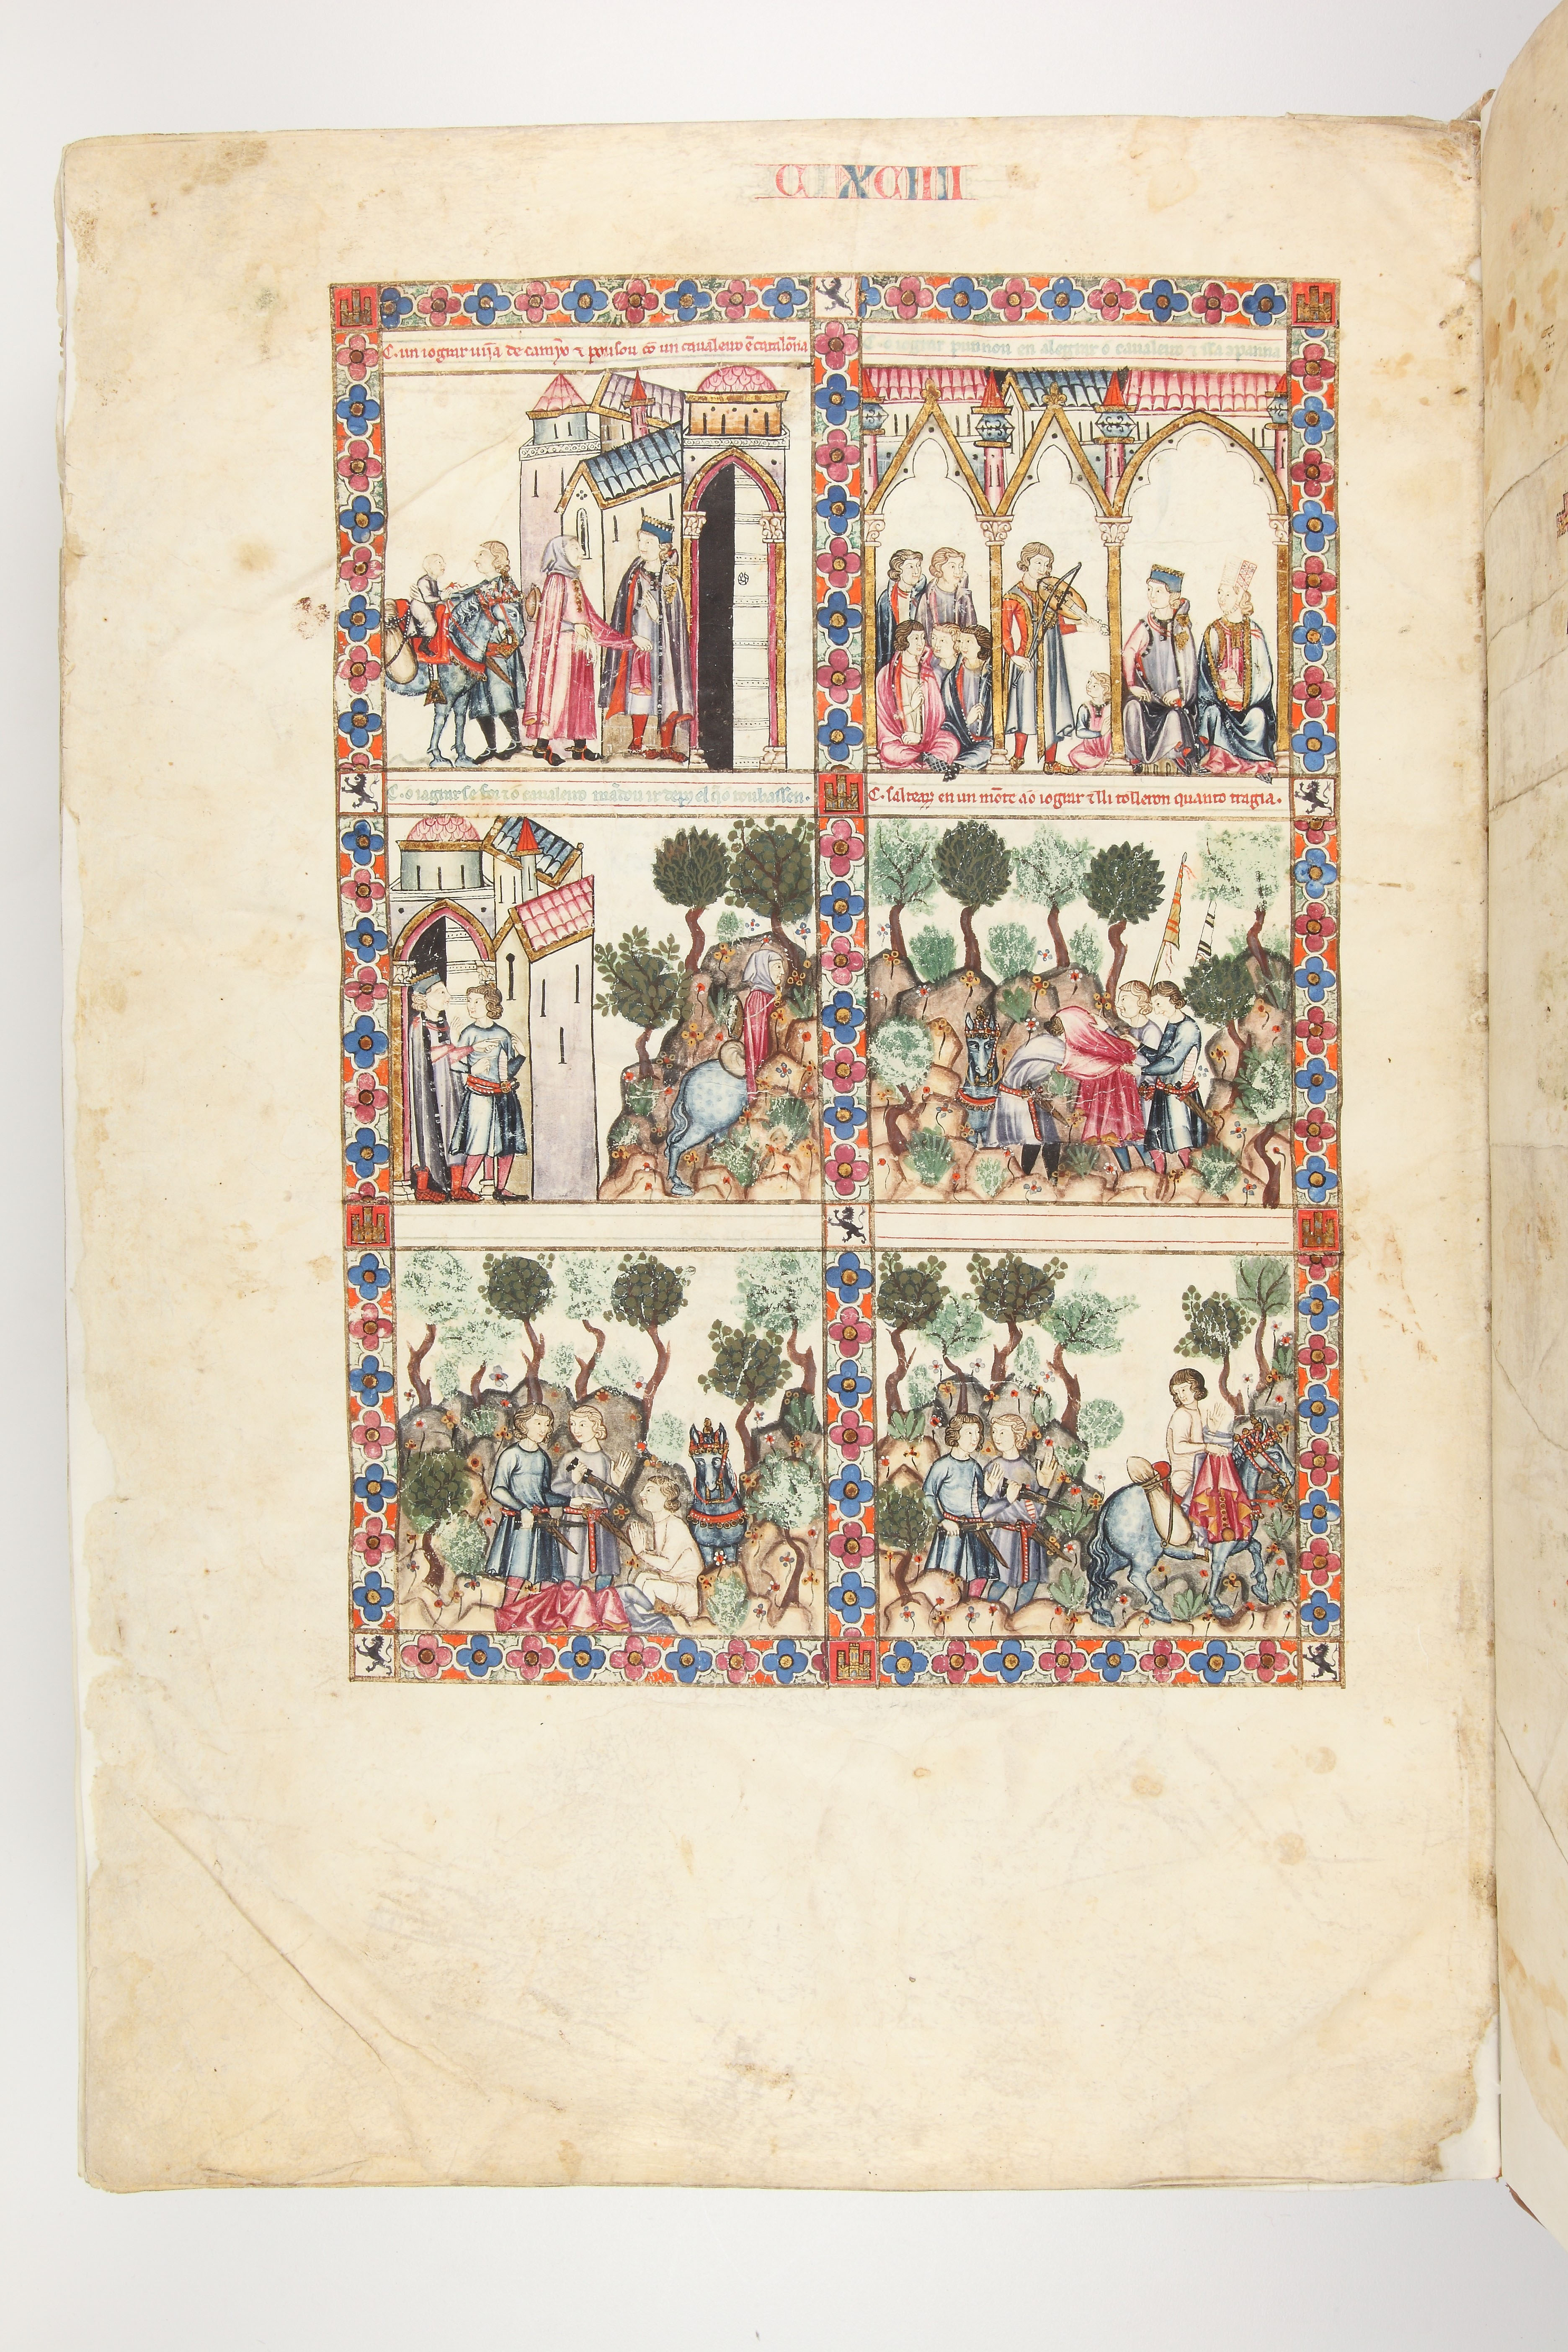 C XCIIII
C. un iograr vĩja de camỹo ⁊ pousou cõ un cavaleiro ẽ catalõna
C. o iograr punnou en alegrar o cavaleiro
C. o iograr se foi ⁊ o cavaleiro mãdou ir depos el q̃ o roubassen.
C. saltearõ en un mõte ao iograr ⁊ lli tolleron quanto tragia.